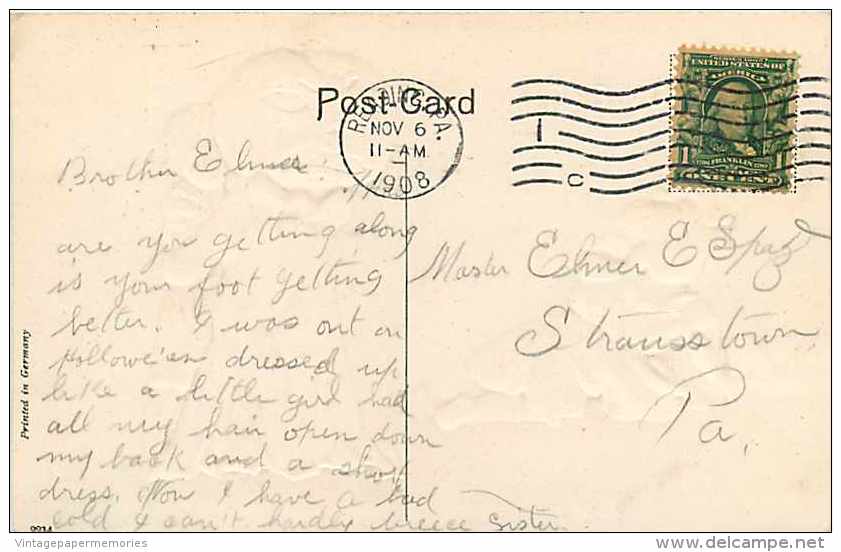 Post-Card
READING, PA.
NOV 6
11-AM
1908
1
C
UNITED STATES OF
AMERICA
1 FRANKLIN 1
ONE CENT
Brother Elmer
are you getting along
is your foot getting
better. I was out on
Hollowe'en dressed up
like a little girl had
all my hair open down
my back and a short
dress. Now I have a bad
cold I can't hardly breece Sister
Master Elmer E Spatz
Strausstown
Pa,
Printed in Germany
Vintagepapermemories
www.delcampe.net